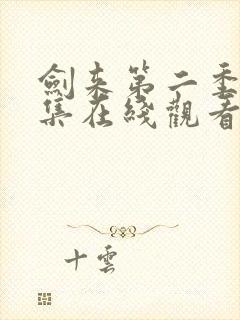 劍来第二季
集在綫觀看
十雲